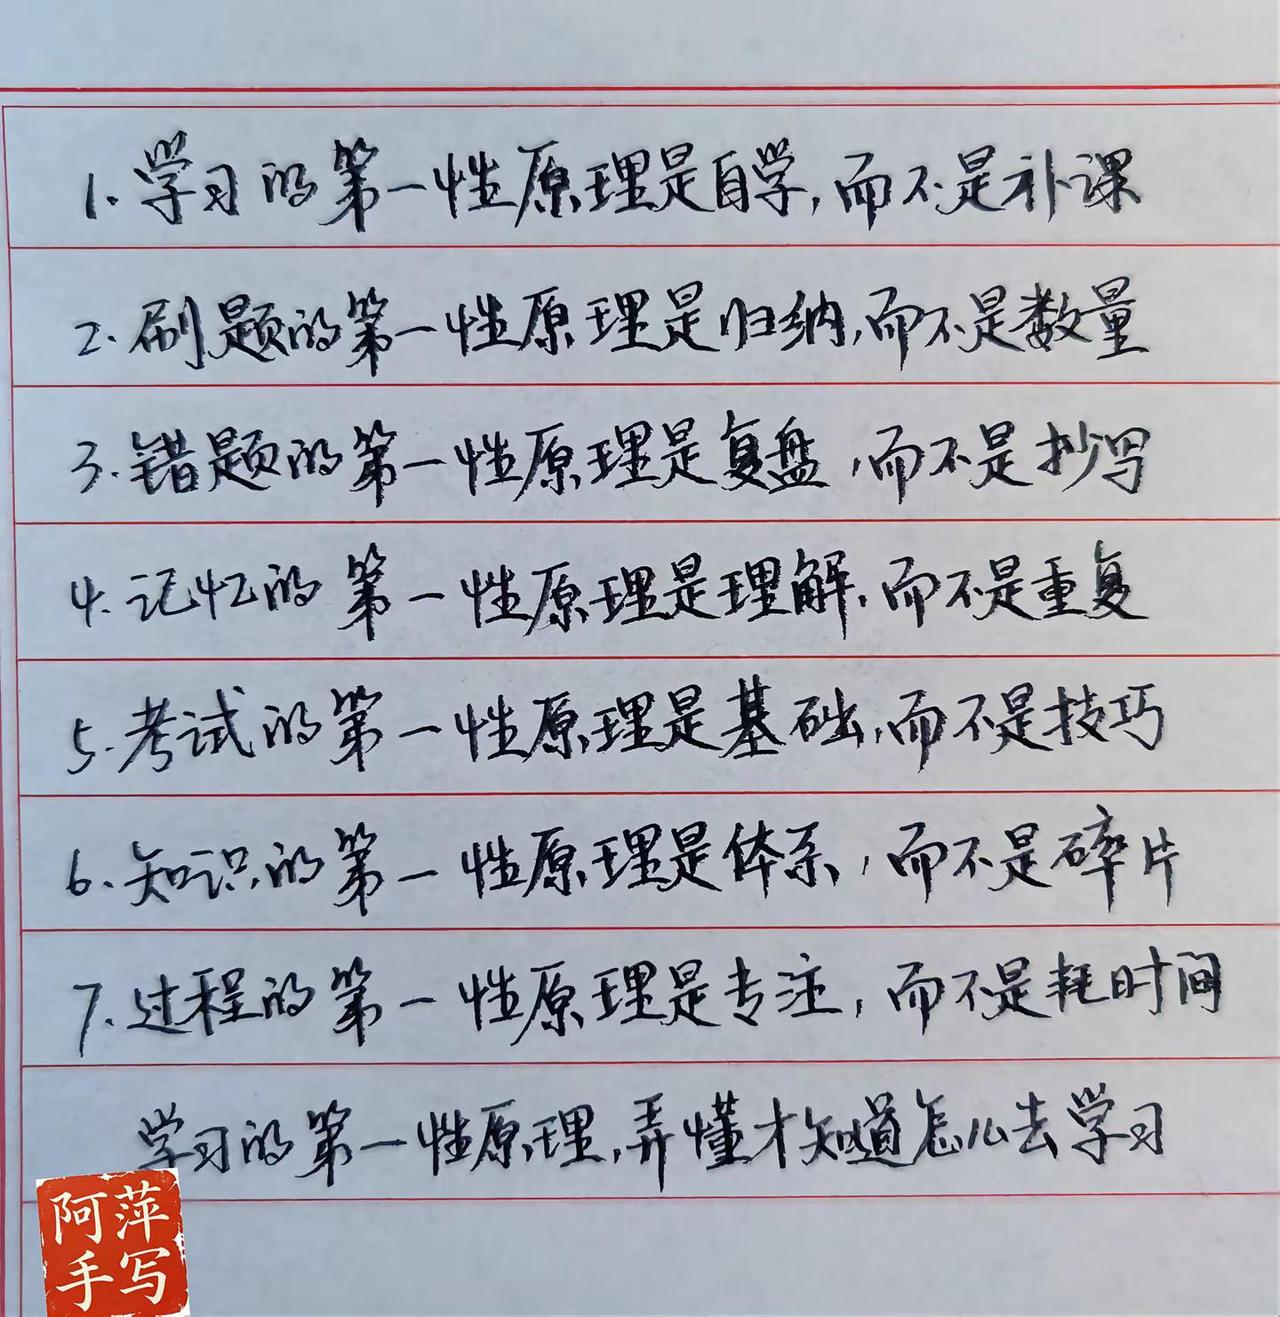 1.学习的第一性原理是自学,而不是补课
2.刷题的第一性原理是归纳,而不是数量
3.错题的第一性原理是复盘,而不是抄写
4.记忆的第一性原理是理解,而不是重复
5.考试的第一性原理是基础,而不是技巧
6.知识的第一性原理是体系,而不是碎片
7.过程的第一性原理是专注,而不是耗时间
学习的第一性原理,弄懂才知道怎么去学习
阿萍
手写